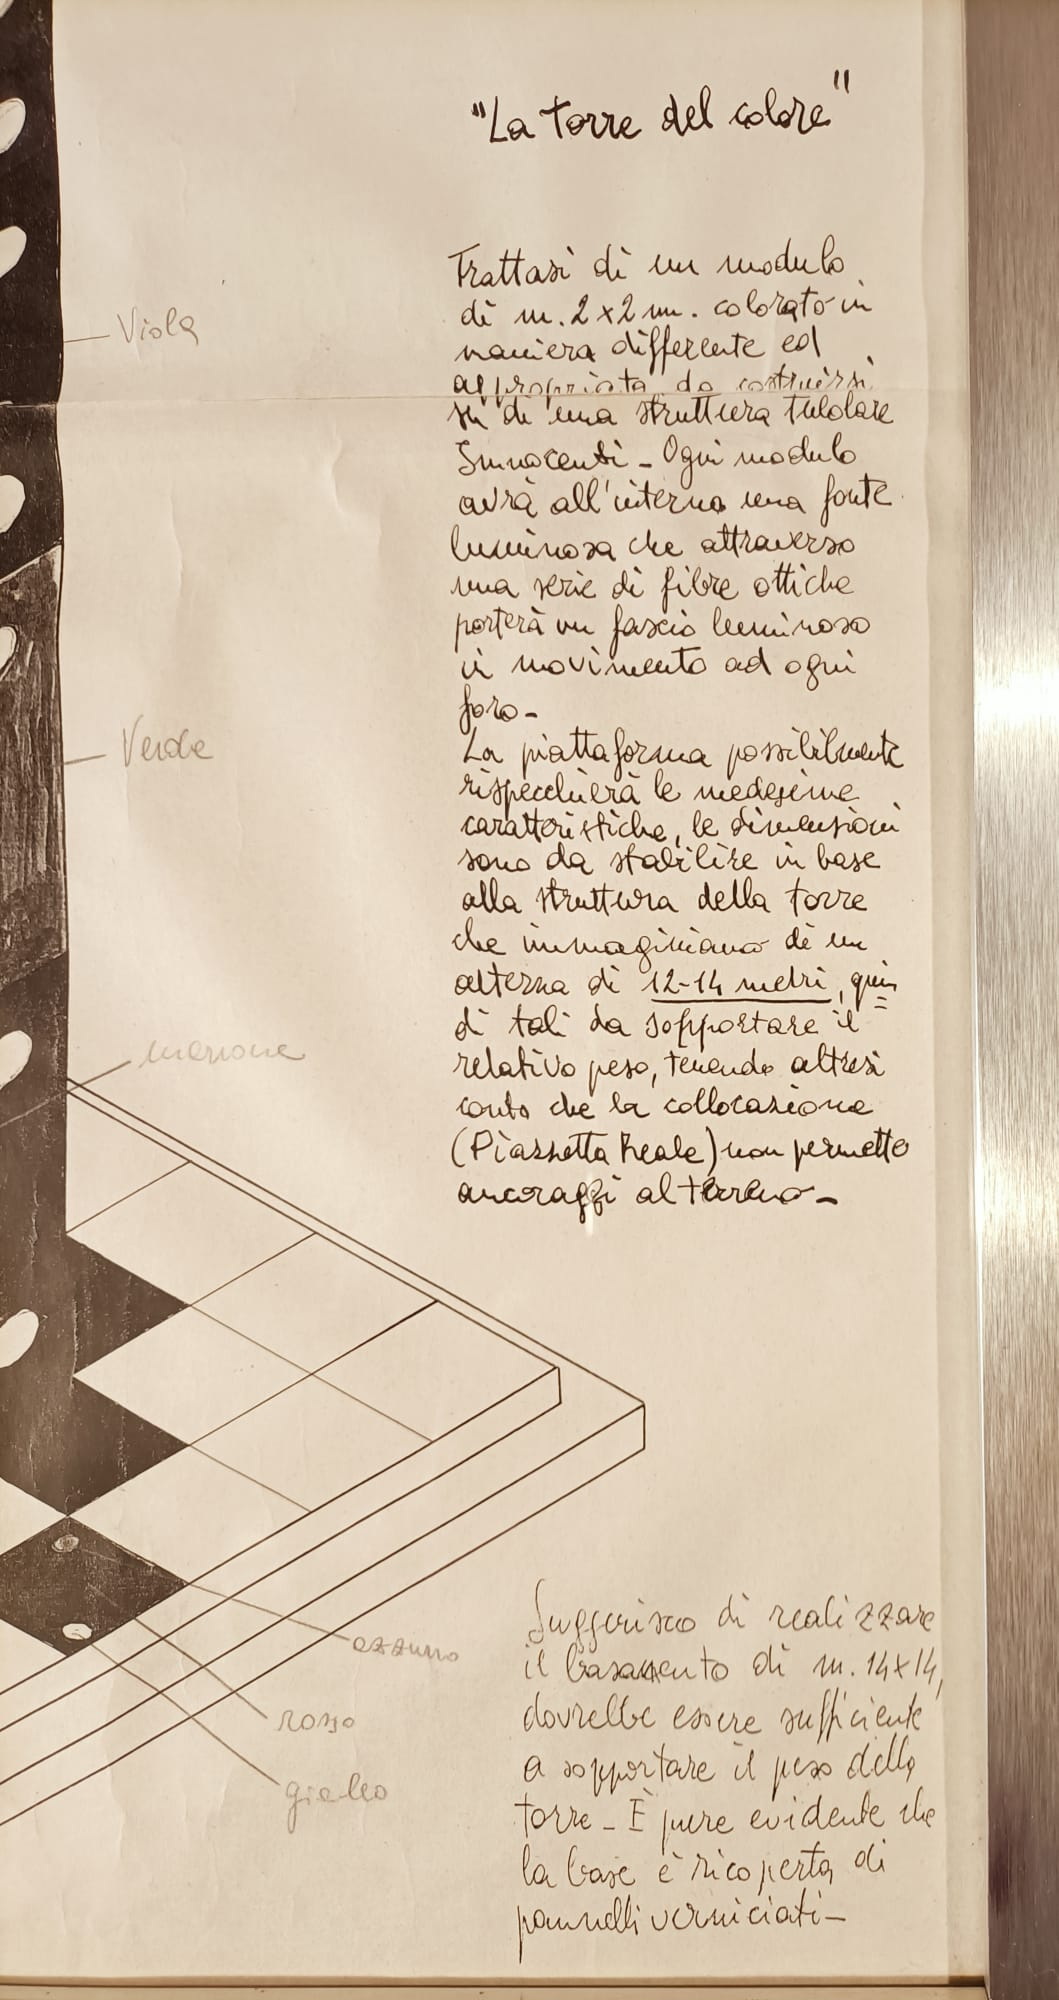 "La torre del colore"
Trattasi di un modulo
di m. 2x2 m. colorato in
maniera differente ed
appropriata da costruirsi
su di una struttura tubolare
Innocenti - Ogni modulo
avrà all'interno una fonte
luminosa che attraverso
una serie di fibre ottiche
porterà un fascio luminoso
in movimento ad ogni
foro -
La piattaforma possibilmente
rispecchierà le medesime
caratteristiche, le dimensioni
sono da stabilire in base
alla struttura della torre
che immaginiamo di un
altezza di 12-14 metri, quin
di tali da sopportare il
relativo peso, tenendo altresì
conto che la collocazione
(Piazzetta Reale) non permette
ancoraggi al terreno -
Viola
Verde
marrone
azzurro
rosso
giallo
Suggerisco di realizzare
il basamento di m. 14x14,
dovrebbe essere sufficiente
a sopportare il peso della
torre - È pure evidente che
la base è ricoperta di
pannelli verniciati -